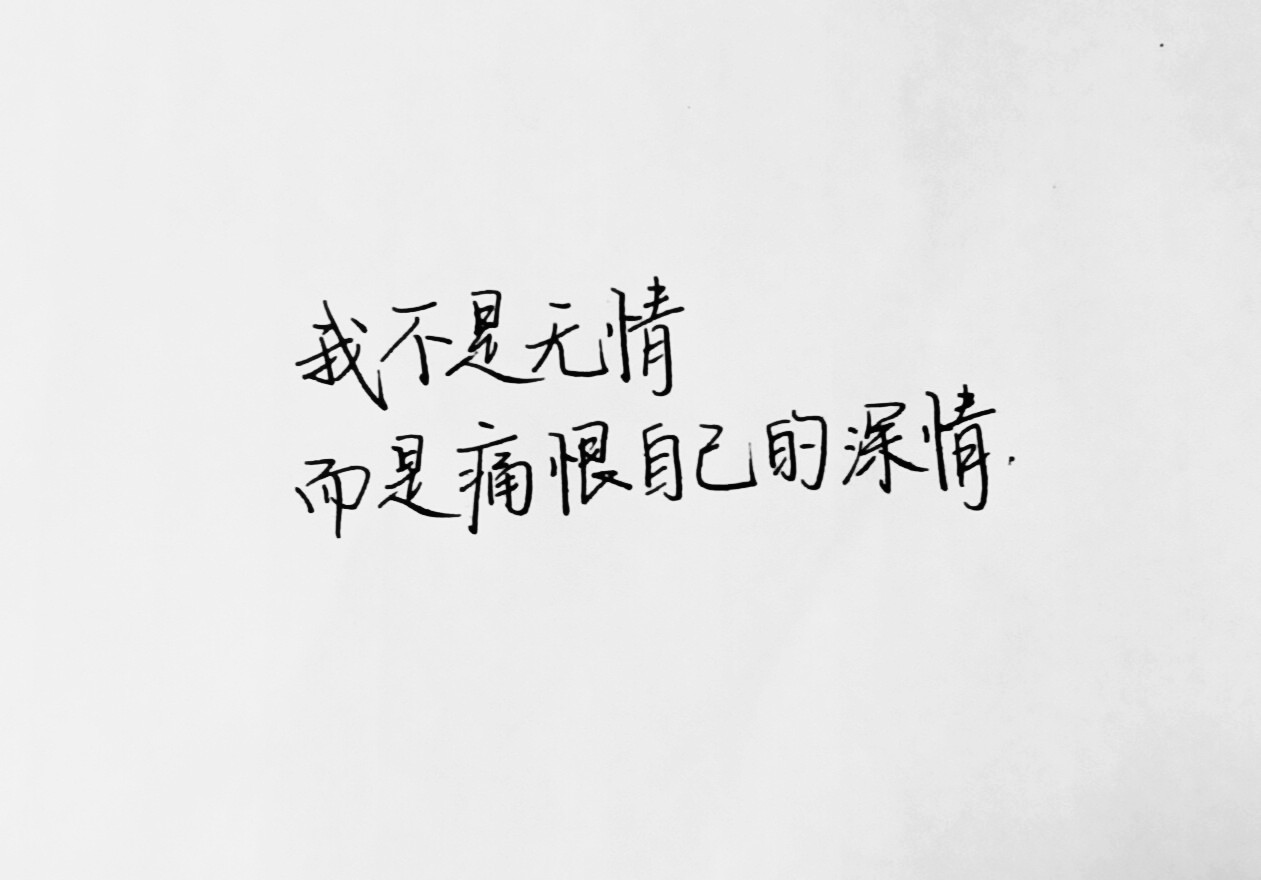 我不是无情
而是痛恨自己的深情.